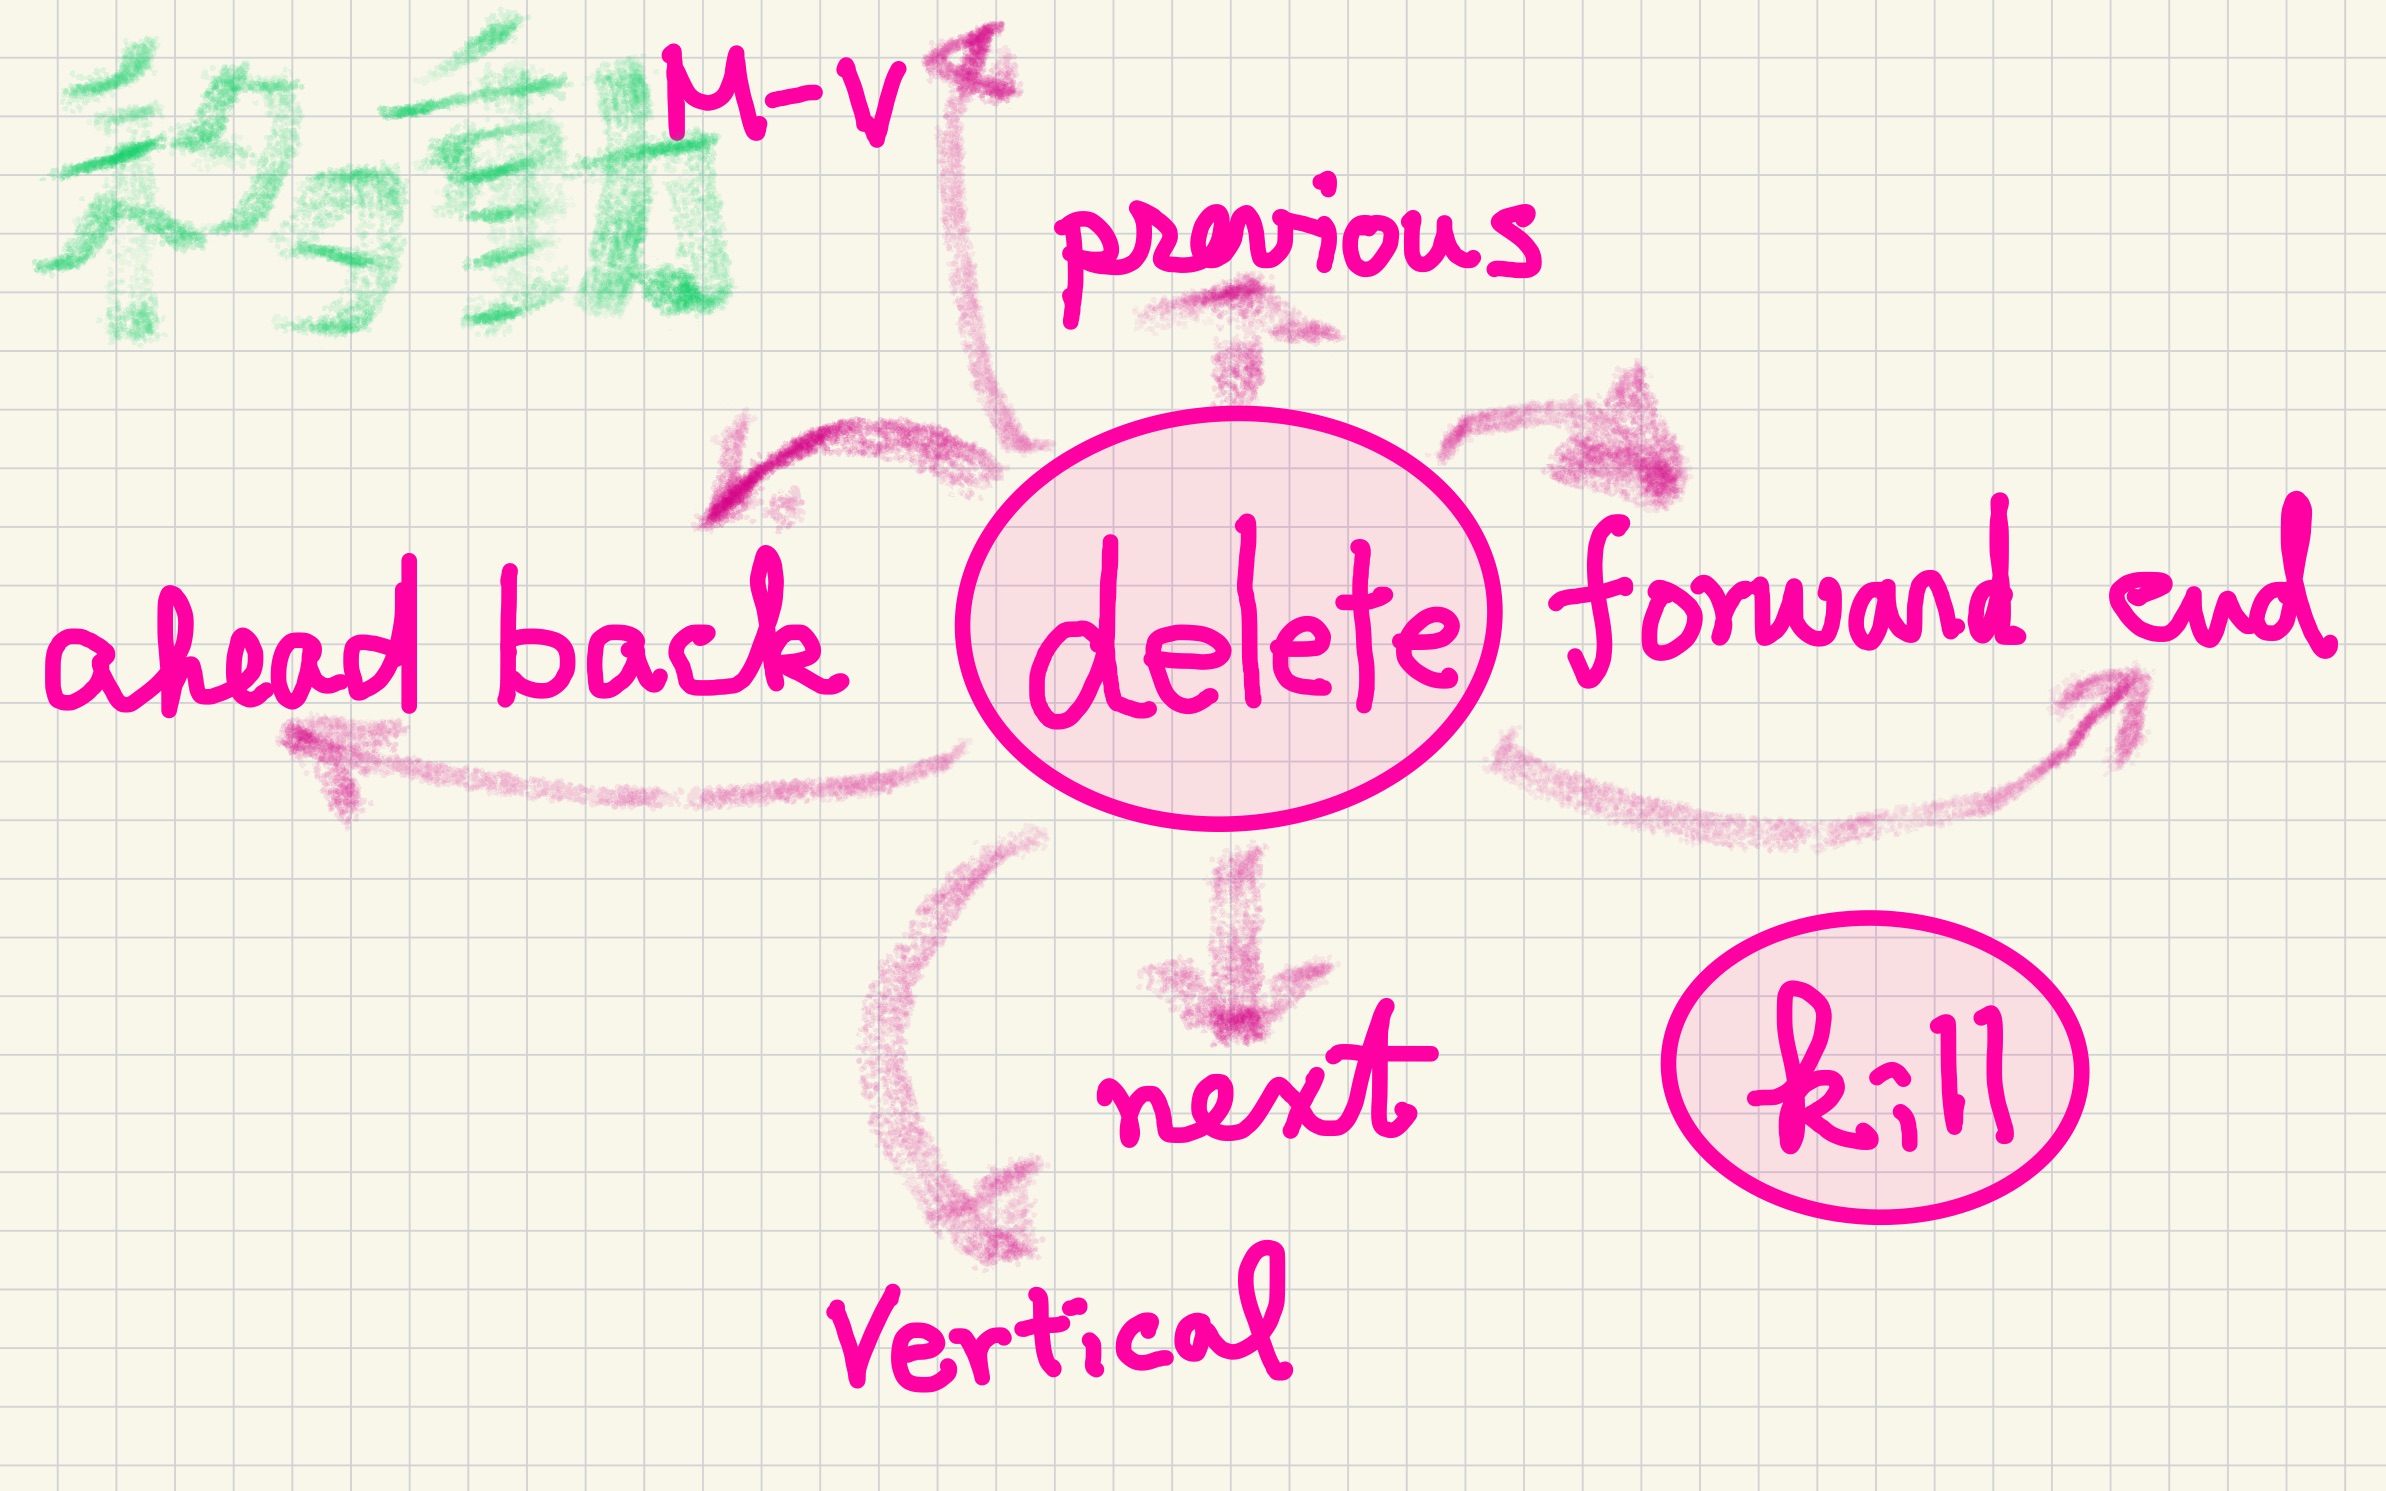 移動
M-V
previous
ahead back delete forward end
next
kill
Vertical